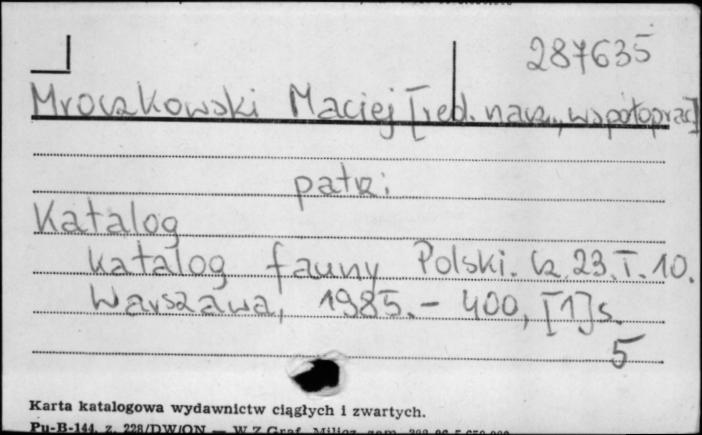 287635
Mroczkowski Maciej [red. nacz., współoprac]
patrz:
Katalog
Katalog fauny Polski. Cz. 23. T. 10.
Warszawa, 1985. - 400, [1] s.
5
Karta katalogowa wydawnictw ciągłych i zwartych.
Pu-B-144. z. 228/DW/ON — W Z Graf. Milicz